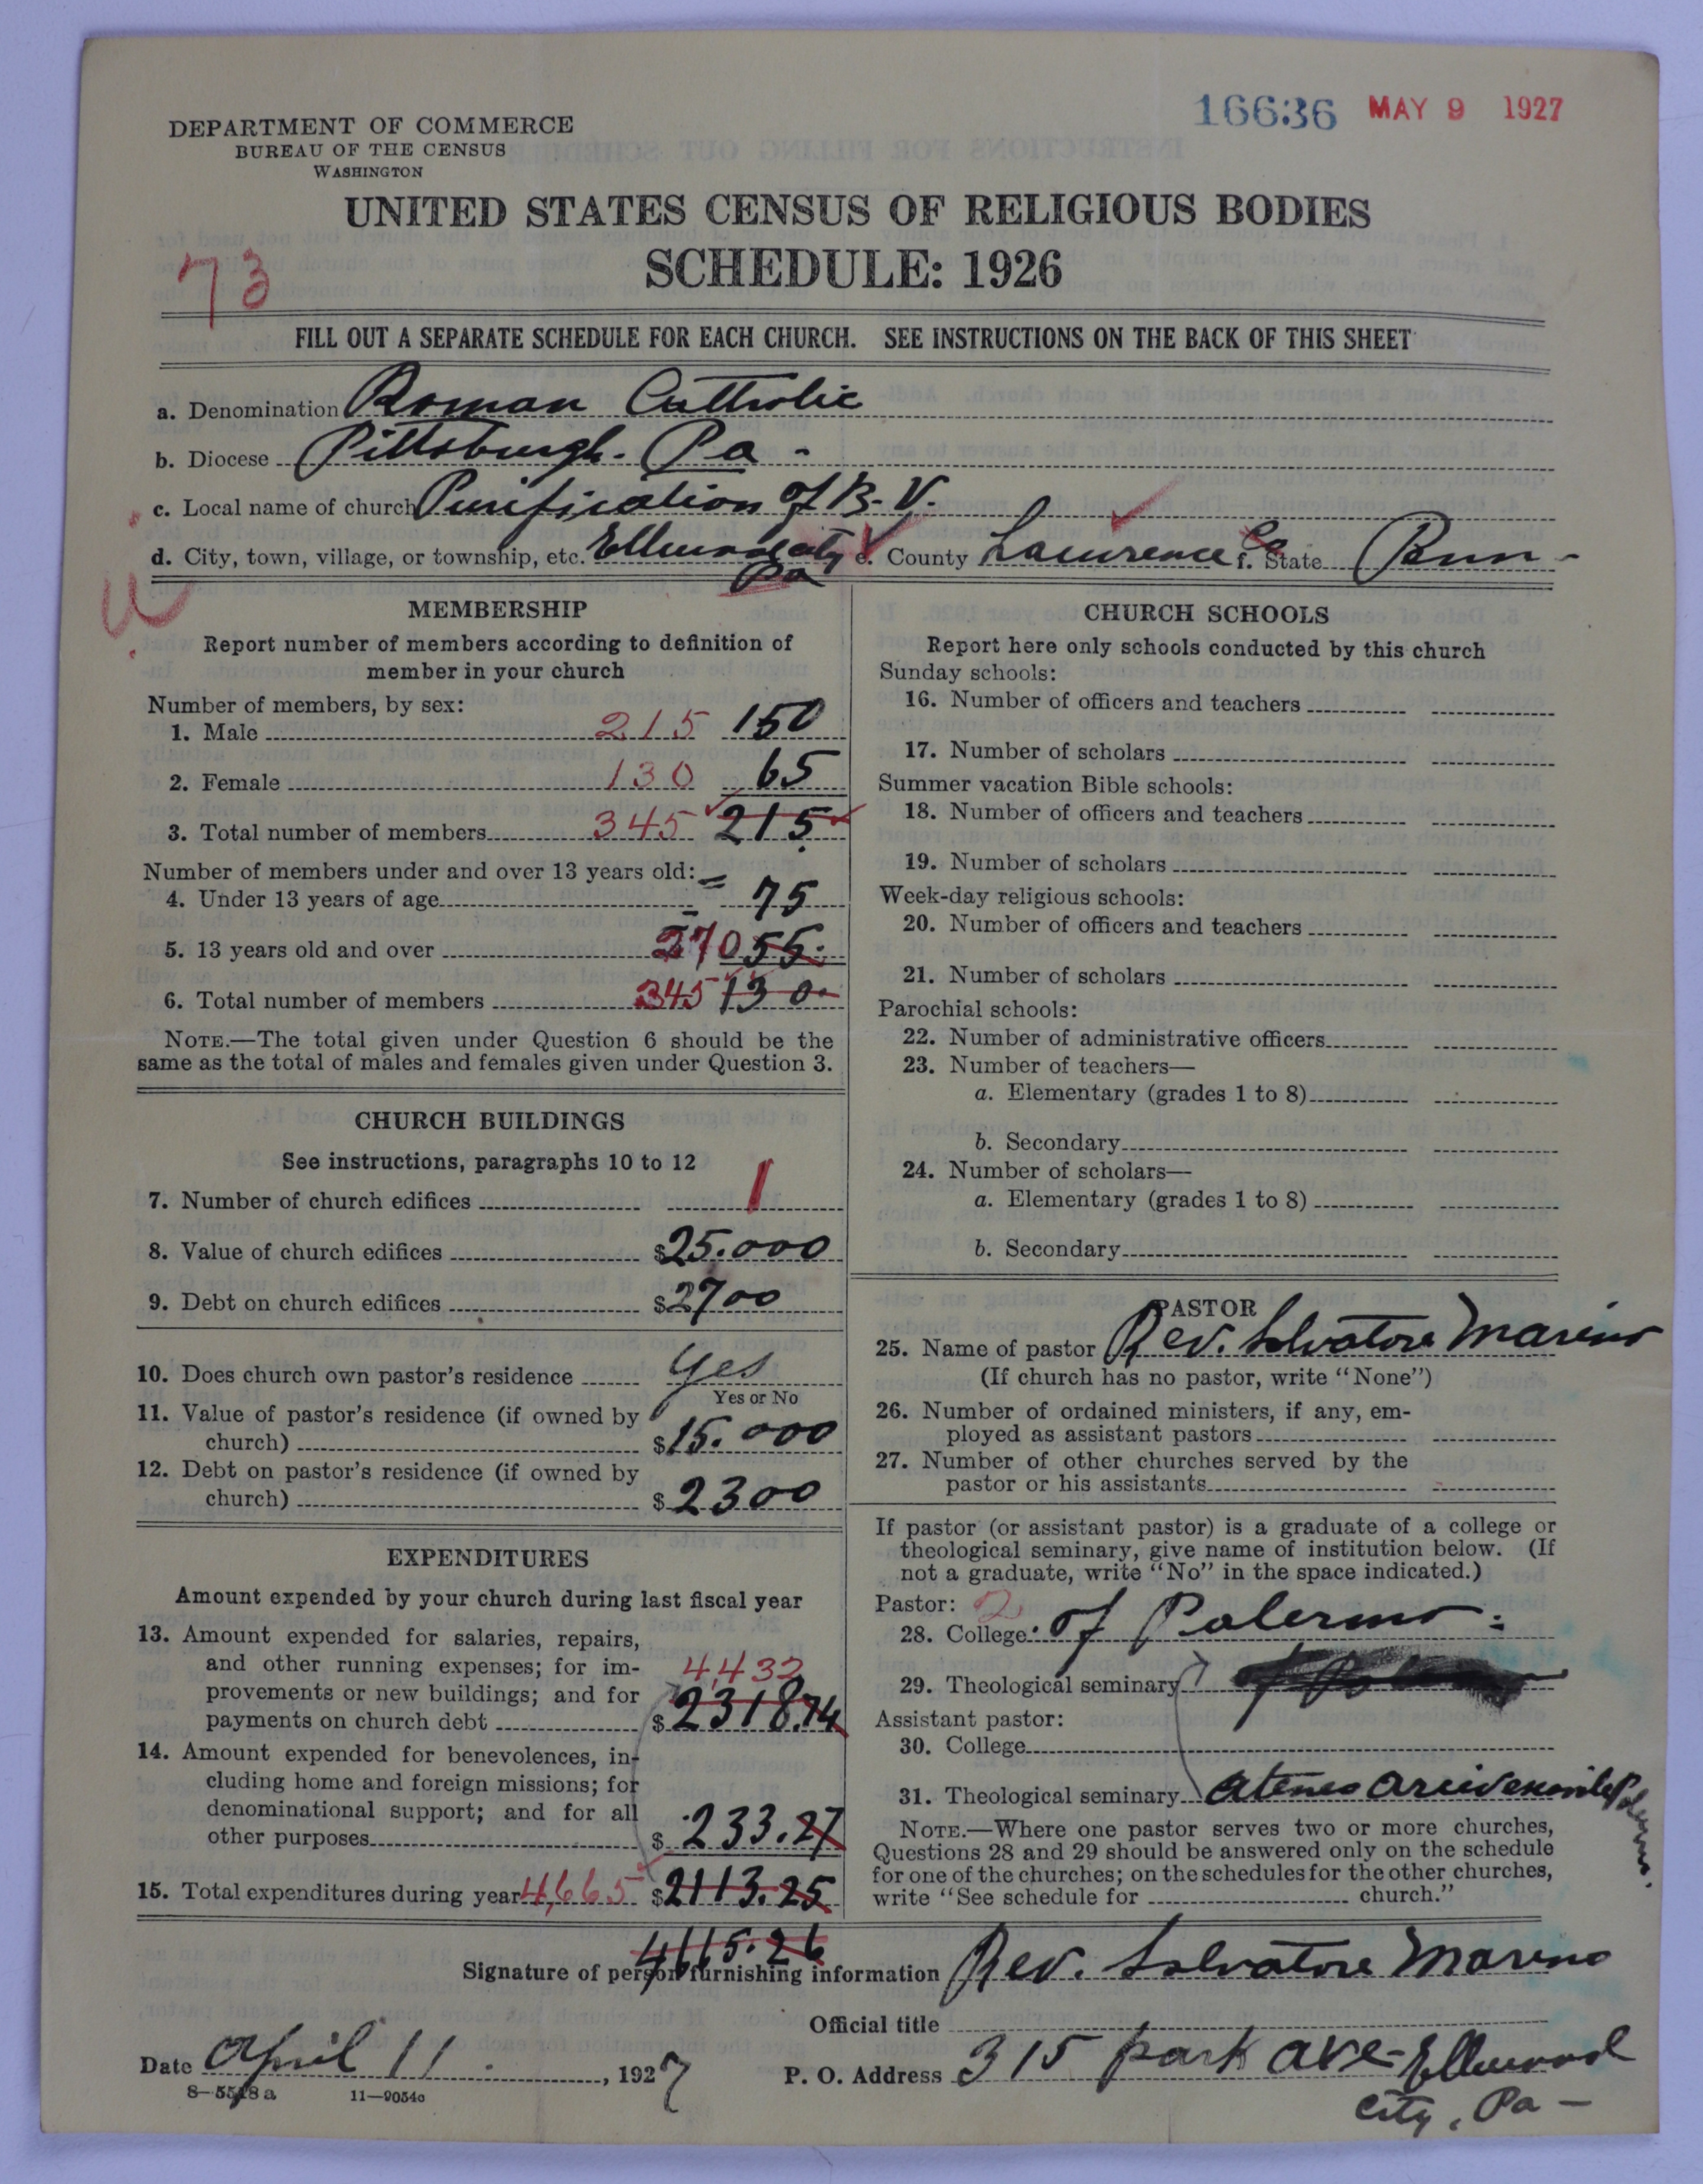 16636 MAY 9 1927
DEPARTMENT OF COMMERCE
BUREAU OF THE CENSUS
WASHINGTON
UNITED STATES CENSUS OF RELIGIOUS BODIES
SCHEDULE: 1926
73
FILL OUT A SEPARATE SCHEDULE FOR EACH CHURCH. SEE INSTRUCTIONS ON THE BACK OF THIS SHEET
a. Denomination Roman Cattholic
b. Diocese Pittsburgh. Pa -
c. Local name of church Purification of B. V.
d. City, town, village, or township, etc. Ellwood city Pa e. County Lawrence Co f. State Penn -
u
MEMBERSHIP
Report number of members according to definition of
member in your church
Number of members, by sex:
1. Male 215 150
2. Female 130 65
3. Total number of members 345 215
Number of members under and over 13 years old:
4. Under 13 years of age 75
5. 13 years old and over 270 55
6. Total number of members 345 130
NOTE.—The total given under Question 6 should be the
same as the total of males and females given under Question 3.
CHURCH BUILDINGS
See instructions, paragraphs 10 to 12
7. Number of church edifices 1
8. Value of church edifices $25.000
9. Debt on church edifices $2700
10. Does church own pastor's residence Yes
Yes or No
11. Value of pastor's residence (if owned by
church) $15.000
12. Debt on pastor's residence (if owned by
church) $2300
EXPENDITURES
Amount expended by your church during last fiscal year
13. Amount expended for salaries, repairs,
and other running expenses; for im-
4432
provements or new buildings; and for
payments on church debt $2318.74
14. Amount expended for benevolences, in-
cluding home and foreign missions; for
denominational support; and for all
other purposes $233.27
15. Total expenditures during year 4,665 $2113.25
4665.26
CHURCH SCHOOLS
Report here only schools conducted by this church
Sunday schools:
16. Number of officers and teachers
17. Number of scholars
Summer vacation Bible schools:
18. Number of officers and teachers
19. Number of scholars
Week-day religious schools:
20. Number of officers and teachers
21. Number of scholars
Parochial schools:
22. Number of administrative officers
23. Number of teachers—
a. Elementary (grades 1 to 8)
b. Secondary
24. Number of scholars—
a. Elementary (grades 1 to 8)
b. Secondary
PASTOR
25. Name of pastor Rev. Salvatore Marino
(If church has no pastor, write "None")
26. Number of ordained ministers, if any, em-
ployed as assistant pastors
27. Number of other churches served by the
pastor or his assistants
If pastor (or assistant pastor) is a graduate of a college or
theological seminary, give name of institution below. (If
not a graduate, write "No" in the space indicated.)
Pastor: 2
28. College of Palermo
29. Theological seminary
Assistant pastor:
30. College
31. Theological seminary Ateneo Palermo.
NOTE.—Where one pastor serves two or more churches,
Questions 28 and 29 should be answered only on the schedule
for one of the churches; on the schedules for the other churches,
write "See schedule for church."
Signature of person furnishing information Rev. Salvatore Marino
Official title
Date April 11. , 1927 P. O. Address 315 park ave - Ellwood
city, Pa -
8—5518 a 11—9054c